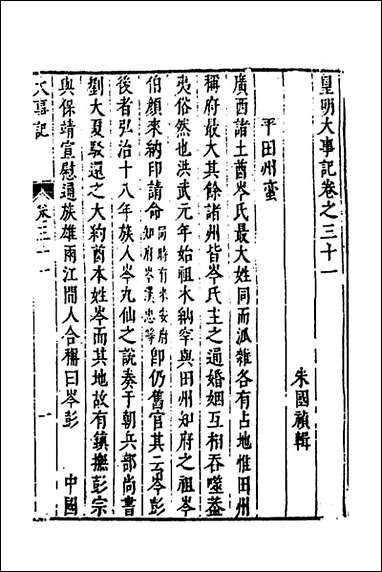 皇明大事記卷之三十一
朱國禎輯
平田州蠻
廣西諸土酋岑氏最大姓同而派雜各有占地惟田州
稱府最大其餘諸州皆岑氏主之通婚姻互相吞噬葢
夷俗然也洪武元年始祖木納罕與田州知府之祖岑
伯顏來納印請命同時有來安府知府岑漢忠等即仍舊官其云岑彭
後者弘治十八年族人岑九仙之說奏于朝兵部尚書
劉大夏駁還之大約酋本姓岑而其地故有鎮撫彭宗
與保靖宣慰通族雄兩江間人合稱曰岑彭 中國
大事記
卷三十一
一